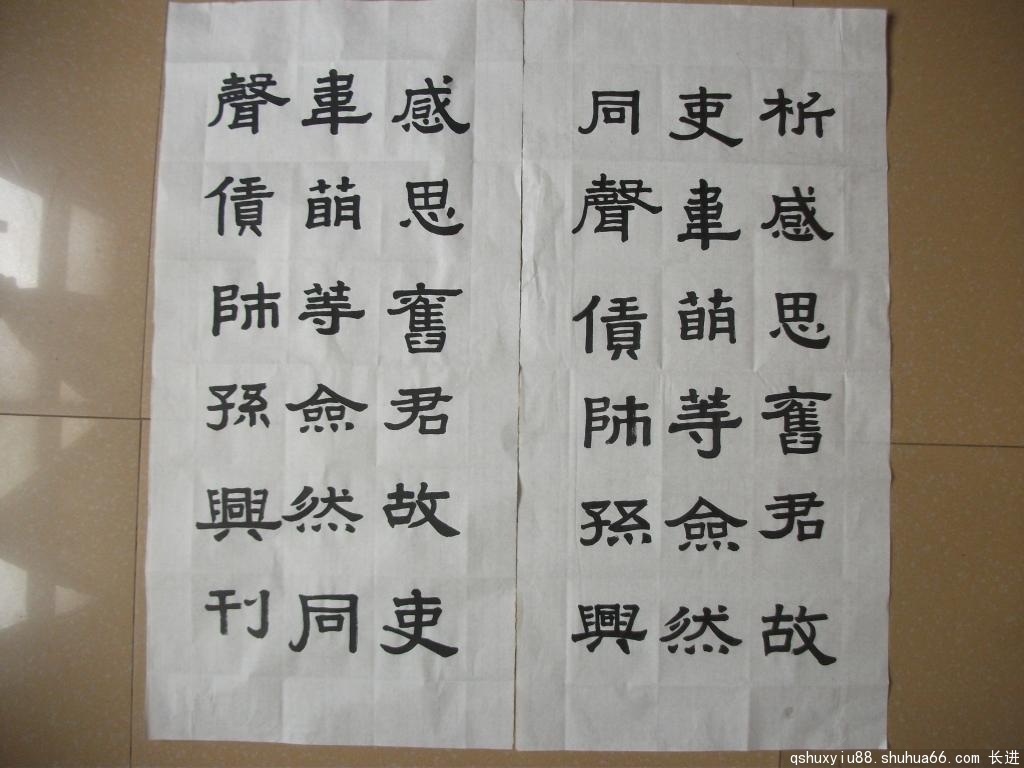 析感思舊君故
吏韋萌等僉然
同聲賃師孫興
感思舊君故吏
韋萌等僉然同
聲賃師孫興刊
qshuxyiu88.shuhua66.com 长进